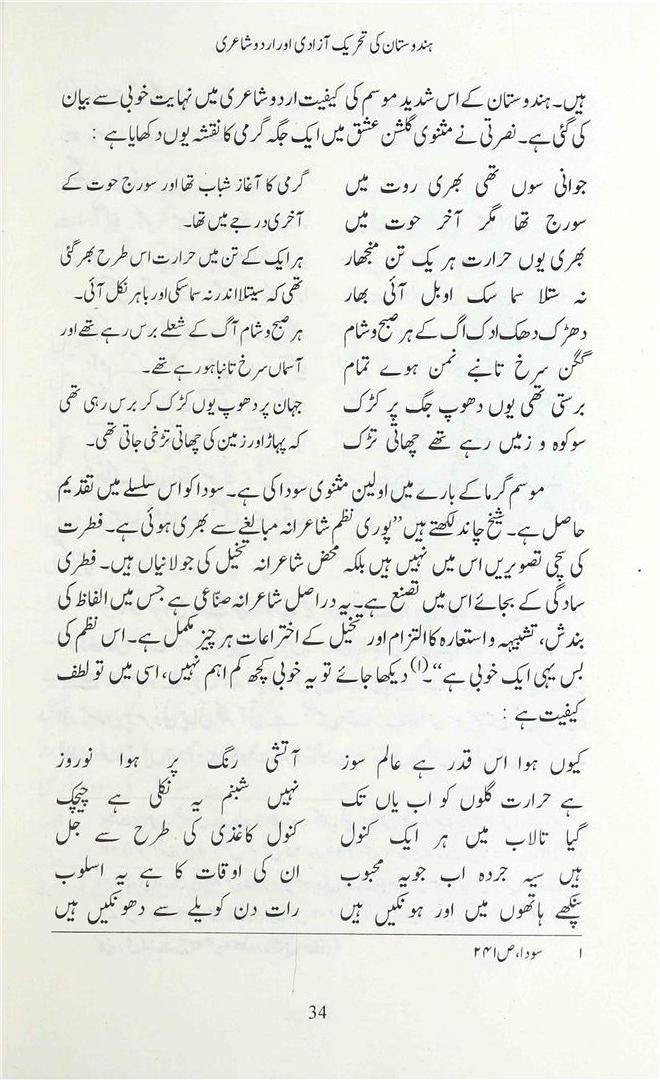 ہندوستان کی تحریک آزادی اور اردو شاعری
ہیں۔ ہندوستان کے اس شدید موسم کی کیفیت اردو شاعری میں نہایت خوبی سے بیان
کی گئی ہے۔ نصرتی نے مثنوی گلشن عشق میں ایک جگہ گرمی کا نقشہ یوں دکھایا ہے :
جوانی سوں تھی بھری روت میں
سورج تھا مگر آخر حوت میں
بھری یوں حرارت ہر یک تن منجھار
نہ ستلا سما سک اوبل آئی بھار
دھڑک دھک ادک اگ کے ہر صبح و شام
گگن سرخ تانبے نمن ہوے تمام
برستی تھی یوں دھوپ جگ پر کڑک
سو کوہ و زمیں رہے تھے چھاتی تڑک
گرمی کا آغاز شباب تھا اور سورج حوت کے
آخری درجے میں تھا۔
ہر ایک کے تن میں حرارت اس طرح بھر گئی
تھی کہ سیتلا اندر نہ سما سکی اور باہر نکل آئی۔
ہر صبح و شام آگ کے شعلے برس رہے تھے اور
آسماں سرخ تانبا ہو رہے تھے۔
جہان پر دھوپ یوں کڑک کر برس رہی تھی
کہ پہاڑ اور زمین کی چھاتی تڑخی جاتی تھی۔
موسم گرما کے بارے میں اولین مثنوی سودا کی ہے۔ سودا کو اس سلسلے میں تقدیم
حاصل ہے۔ شیخ چاند لکھتے ہیں ”پوری نظم شاعرانہ مبالغے سے بھری ہوئی ہے۔ فطرت
کی سچی تصویریں اس میں نہیں ہیں بلکہ محض شاعرانہ تخیل کی جولانیاں ہیں۔ فطری
سادگی کے بجائے اس میں تصنع ہے۔ یہ دراصل شاعرانہ صنّاعی ہے جس میں الفاظ کی
بندش، تشبیہہ و استعارہ کا التزام اور تخیل کے اختراعات ہر چیز مکمل ہے۔ اس نظم کی
بس یہی ایک خوبی ہے“۔(۱) دیکھا جائے تو یہ خوبی کچھ کم اہم نہیں، اسی میں تو لطف
کیفیت ہے :
کیوں ہوا اس قدر ہے عالم سوز آتشی رنگ پر ہوا نوروز
ہے حرارت گلوں کو اب یاں تک نہیں شبنم یہ نکلی ہے چیچک
گیا تالاب میں ہر ایک کنول کنول کاغذی کی طرح سے جل
ہیں سیہ جردہ اب جویہ محبوب ان کی اوقات کا ہے یہ اسلوب
پنکھے ہاتھوں میں اور ہونکیں ہیں رات دن کویلے سے دھونکیں ہیں
۱ سودا، ص ۲۴۱
34